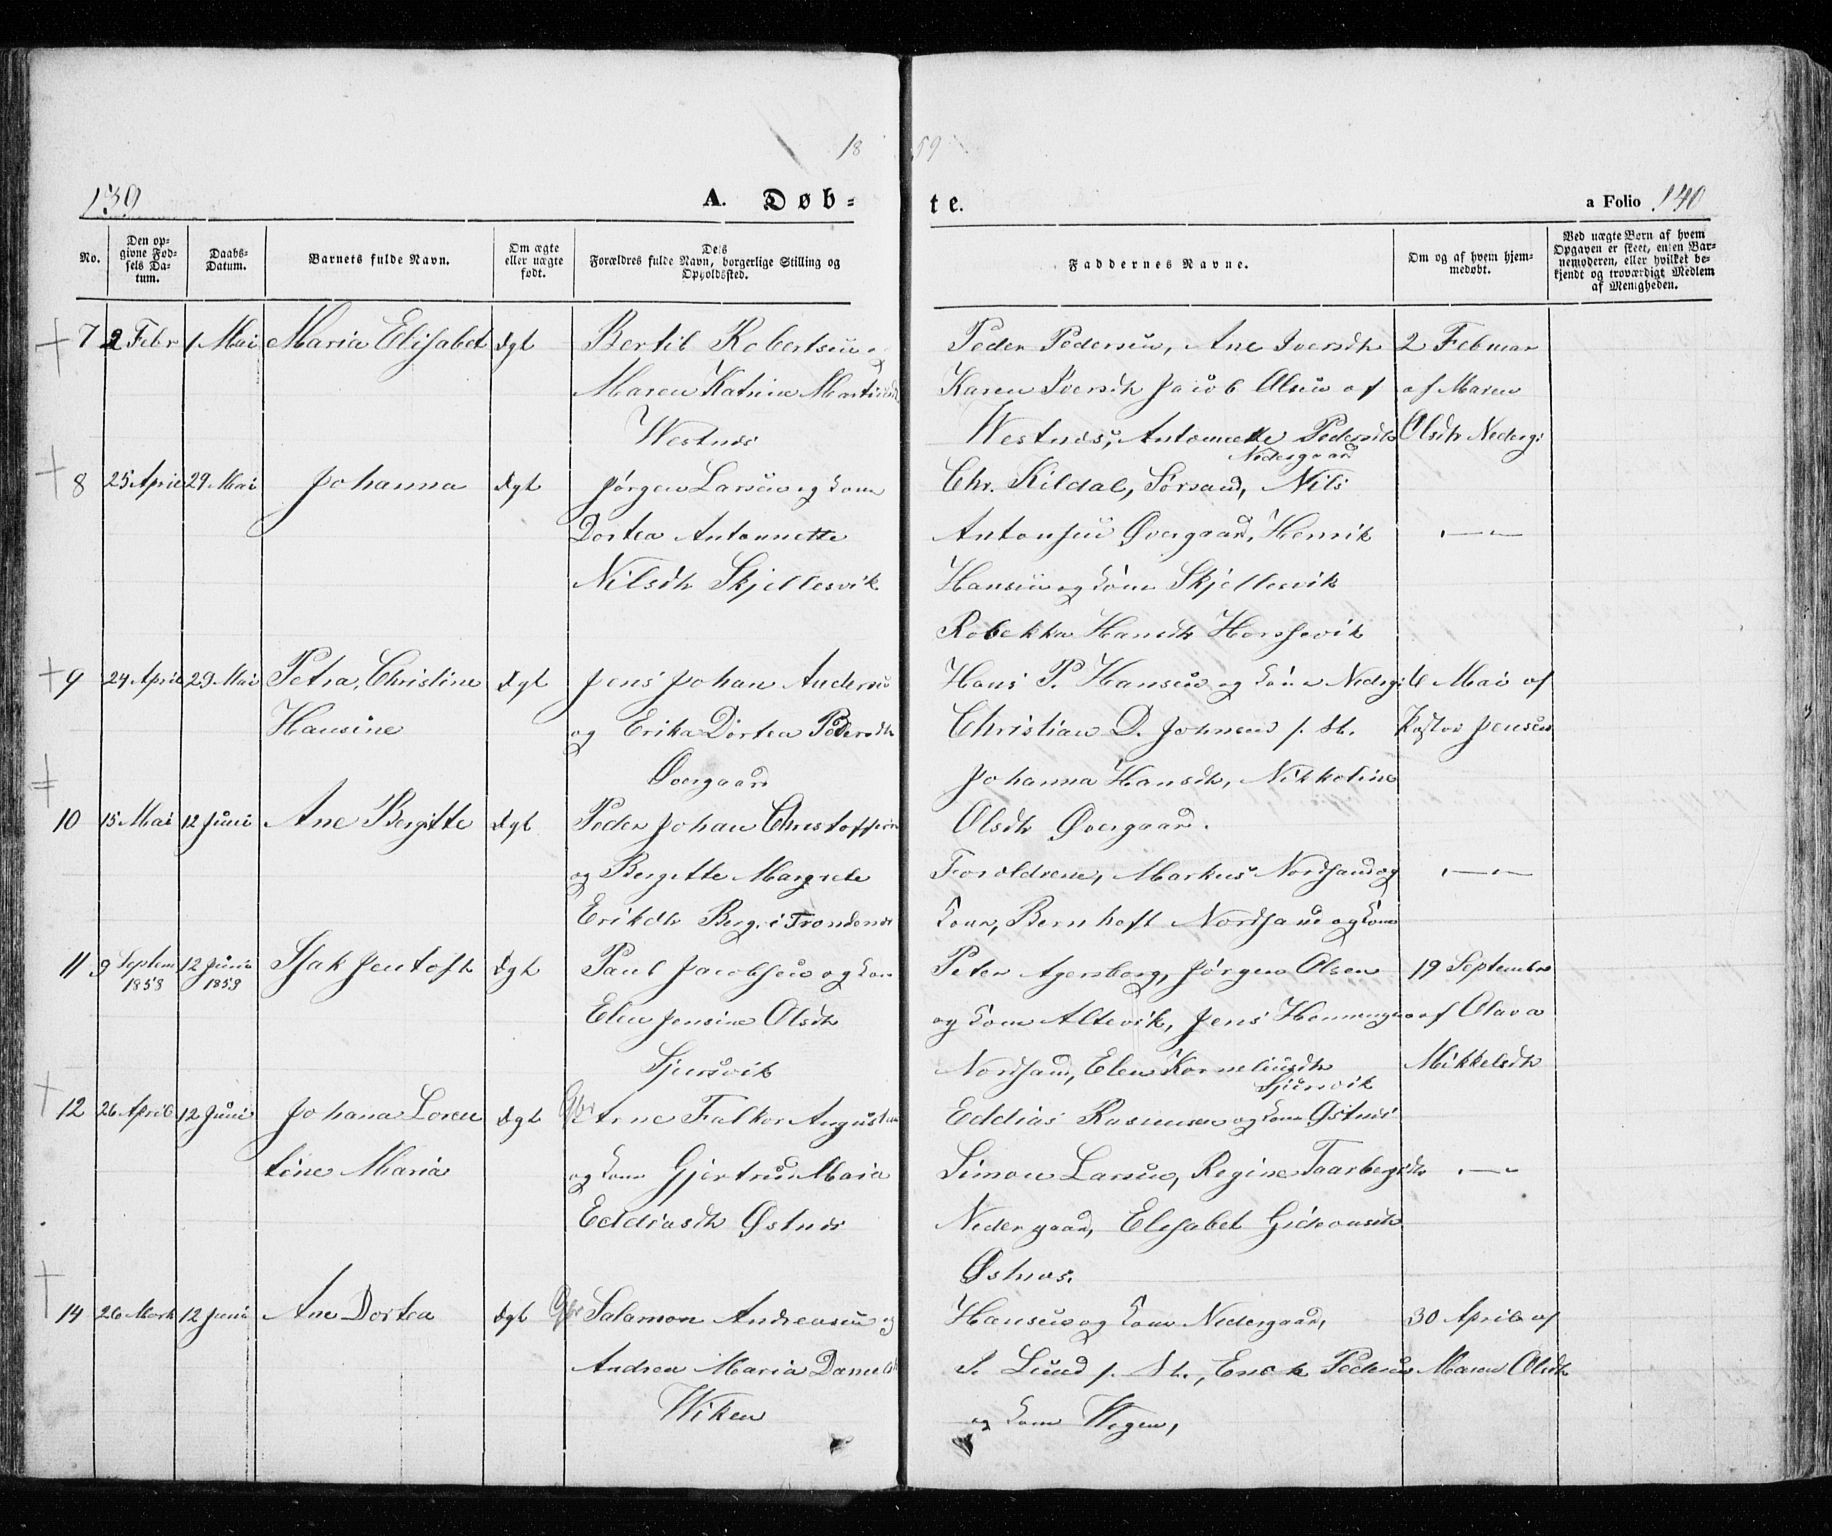 18 59
139
A. Døb-
te.
a Folio 140
No.
Den op-
givne Fød-
sels Da-
tum.
Daabs-
Datum.
Barnets fulde Navn.
Om ægte
eller uægte
født.
Dets
Forældres fulde Navn, borgerlige Stilling og
Opholdssted.
Faddernes Navne.
Om og af hvem hjem-
medøbt.
Ved uægte Børn af hvem
Opgaven er skeet, enten Bar-
nemoderen, eller hvilket be-
kjendt og troværdigt Medlem
af Menigheden.
7 2 Febr 1 Mai Maria Elisabet Ægt Bertil Robertsen og
Maren Katrina
Westnæs
Peder Pedersen, Ane Iversdtr
Karen Iversdtr Jacob Olsen af
Westnæs, Antonette Pedersdtr
Nedergaard
2 Februar
af Maren
Olsdtr Nederg:
8 25 April 29 Mai Johanna Ægt Jørgen Larsen og Kone
Dortea Antonnette
Nilsdtr Skjellesvik
Chr. Kildal, Sørsand, Nils
Antonsen Øvergaard, Henrik
Hansen og Kone Skjellesvik
Rebekka Hansdtr
9 24 April 29 Mai Petra, Christine Ægt Jens Johan Andersen
Hansine
og Erika Dortea Pedersdtr
Øvergaard
Hans P. Hansen og Kone Nederg:
Christian D. Johnsen p. St.
Johanna Hansdtr, Nikkoline
Olsdtr Øvergaard.
6 Mai af
Jensen
10 15 Mai 12 Juni Ane Bergitte Ægt Peder Johan Christoffersen
og Bergitte Margrete
Erikdtr Berg. i Trondenæs
Forældrene, Markus Nordsand og
Kone, Bernhoft Nordsand og Kone
11 9 Septem 12 Juni Isak Jentoft Ægt Paul Jacobsen og Kone
1858 1859
Elen Jensine Olsdtr
Sjursvik
Peter Agersborg, Jørgen Olsen
og Kone Altevik, Jens Henningsen
Nordsand, Elen Korneliusdtr
Sjursvik
19 September
af Olava
Mikkelsdtr
12 26 April 12 Juni Johana Loren Ægt Arne Falkor Augustsen
tine Maria
og Kone Gjertrud Maria
Eddiasdtr Østnæs
Eddias Rasmusen og Kone Østnæs
Simon Larsen, Regine Taarbergsdtr
Nedergaard, Elisabet Gideonsdtr
Østnæs.
14 26 Mark 12 Juni Ane Dortea Ægt Salamon Andreasen og
Andrea Maria
Wiken
Hansen og Kone Nedergaard,
S. Lund p. St., Enok Pedersen
og Kone Wigen,
30 April af
Maren Olsdtr